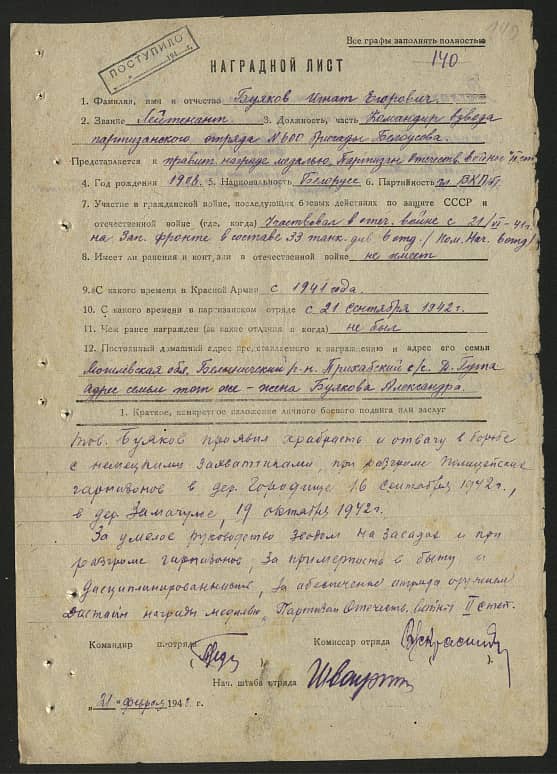 ПОСТУПИЛО
194 г.
Все графы заполнять полностью
140
НАГРАДНОЙ ЛИСТ
1. Фамилия, имя и отчество Буяков Игнат Егорович.
2. Звание Лейтенант 3. Должность, часть Командир взвода
партизанского отряда N600 бригады Белоусова.
Представляется к правит. награде медалью Партизан Отечеств. войны II ст.
4. Год рождения 5. Национальность Белорус 6. Партийность ВКП(б)
7. Участие в гражданской войне, последующих боевых действиях по защите СССР и
отечественной войне (где, когда) Участвовал в отеч. войне с 21/VI-41г.
на Зап. фронте в составе 33 танк. див
8. Имеет ли ранения и контузии в отечественной войне не имеет
9. С какого времени в Красной Армии с 1941 года.
10. С какого времени в партизанском отряде с 21 сентября 1942 г.
11. Чем ранее награжден (за какие отличия и когда) не был
12. Постоянный домашний адрес представляемого к награждению и адрес его семьи
Могилёвская обл. Белыничский р-н. с/с. Д.
Адрес семьи тот же - жена Буякова Александра.
1. Краткое, конкретное изложение личного боевого подвига или заслуг
Тов. Буяков проявил храбрость и отвагу в борьбе
с немецкими захватчиками, при разгроме полицейских
гарнизонов в дер. Городище 16 сентября 1942 г.,
в дер. 19 октября 1942 г.
За умелое руководство взводом на засадах и при
разгроме гарнизонов, за примерность в быту и
дисциплинированность, за обеспечение отряда оружием
достоин награды медалью "Партизан Отечеств. войны II степ.
Командир п.-отряда Комиссар отряда
( ) ( ).
Нач. штаба отряда
„21" февраля 194 г.